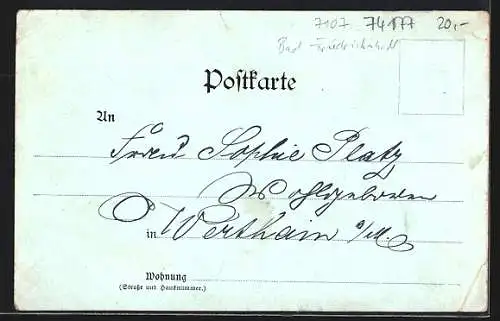 7107 74177 20,-
Bad Friedrichshall
Postkarte
An
Frau Sophie Platz
Wohlgeboren
in Wertheim a/M.
Wohnung
(Straße und Hausnummer.)